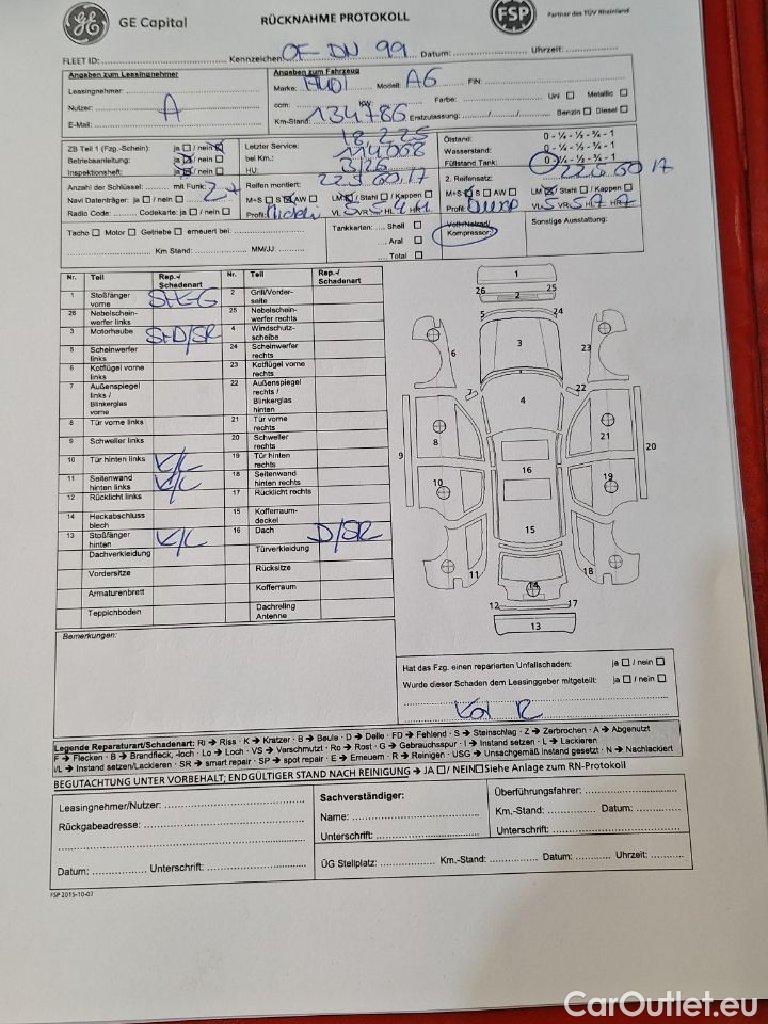 GE Capital
RÜCKNAHME PROTOKOLL
FSP
Partner des TÜV Rheinland
FLEET ID: Kennzeichen OF-DN 99 Datum: Uhrzeit:
Angaben zum Leasingnehmer
Leasingnehmer:
Nutzer: A
E-Mail:
Angaben zum Fahrzeug
Marke: AUDI Modell: A6 FIN:
ccm: KW: Farbe: Uni Metallic
Km-Stand: 134786 Erstzulassung: / / Benzin Diesel
ZB Teil 1 (Fzg.-Schein): ja / nein
Betriebsanleitung: ja / nein
Inspektionsheft: ja / nein
Letzter Service: 18.2.25
bei Km.: 114068
HU: 3/26
Ölstand: 0 - ¼ - ½ - ¾ - 1
Wasserstand: 0 - ¼ - ½ - ¾ - 1
Füllstand Tank: 0 - ¼ - ½ - ¾ - 1
Anzahl der Schlüssel: mit Funk: 2
Navi Datenträger: ja / nein
Radio Code: Codekarte: ja / nein
Reifen montiert: 225 60 17
M+S S AW LM / Stahl / Kappen
Profil: VL 5 VR 5 HL 4 HR 4
2. Reifensatz: 225 60 17
M+S S AW LM / Stahl / Kappen
Profil: VL 5 VR 5 HL 7 HR 7
Tacho Motor Getriebe erneuert bei:
Km Stand: MM/JJ:
Tankkarten: Shell
Aral
Total
Voll-/Notrad/
Kompressor
Sonstige Ausstattung:
Nr. Teil Rep.-/Schadenart Nr. Teil Rep.-/Schadenart
1 Stoßfänger vorne St-G 2 Grill/Vorderseite
26 Nebelscheinwerfer links 25 Nebelscheinwerfer rechts
3 Motorhaube St-D/SR 4 Windschutzscheibe
5 Scheinwerfer links 24 Scheinwerfer rechts
6 Kotflügel vorne links 23 Kotflügel vorne rechts
7 Außenspiegel links / Blinkerglas vorne 22 Außenspiegel rechts / Blinkerglas hinten
8 Tür vorne links 21 Tür vorne rechts
9 Schweller links 20 Schweller rechts
10 Tür hinten links K/L 19 Tür hinten rechts
11 Seitenwand hinten links K/L 18 Seitenwand hinten rechts
12 Rücklicht links 17 Rücklicht rechts
14 Heckabschlussblech 15 Kofferraumdeckel
13 Stoßfänger hinten K/L 16 Dach D/SR
Dachverkleidung Türverkleidung
Vordersitze Rücksitze
Armaturenbrett Kofferraum
Teppichboden Dachreling Antenne
1
26 2 25
5 24
6 3 23
7 4 22
9 8 21 20
10 16 19
15
11 14 18
12 17
13
Bemerkungen:
Hat das Fzg. einen reparierten Unfallschaden: ja / nein
Wurde dieser Schaden dem Leasinggeber mitgeteilt: ja / nein
Legende Reparaturart/Schadenart: RI → Riss · K → Kratzer · B → Beule · D → Delle · FD → Fehlend · S → Steinschlag · Z → Zerbrochen · A → Abgenutzt
F → Flecken · B → Brandfleck, -loch · Lo → Loch · VS → Verschmutzt · Ro → Rost · G → Gebrauchsspur · I → Instand setzen · L → Lackieren
I/L → Instand setzen/Lackieren · SR → smart repair · SP → spot repair · E → Erneuern · R → Reinigen · USG → Unsachgemäß instand gesetzt · N → Nachlackiert
BEGUTACHTUNG UNTER VORBEHALT; ENDGÜLTIGER STAND NACH REINIGUNG → JA / NEIN Siehe Anlage zum RN-Protokoll
Leasingnehmer/Nutzer:
Rückgabeadresse:
Datum: Unterschrift:
Sachverständiger:
Name:
Unterschrift:
Überführungsfahrer:
Km.-Stand: Datum:
Unterschrift:
ÜG Stellplatz: Km.-Stand: Datum: Uhrzeit:
FSP 2015-10-07
CarOutlet.eu